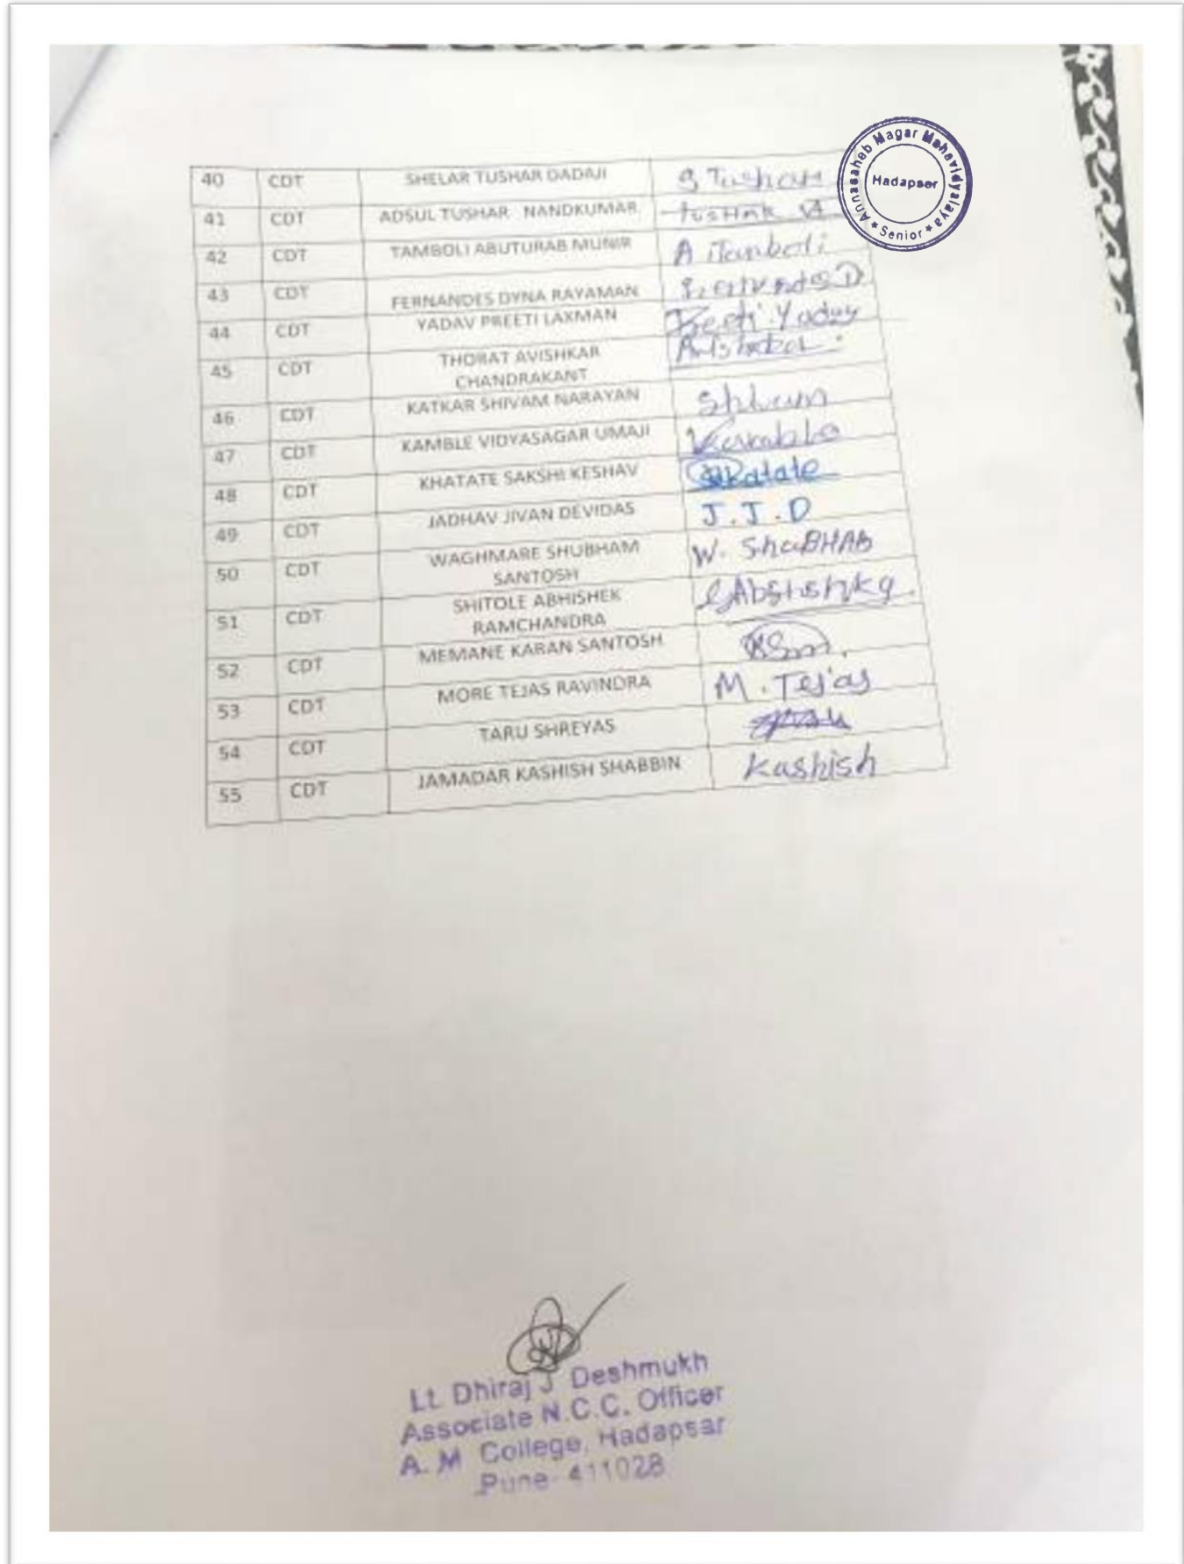 Annasaheb Magar Mahavidyalaya
Hadapser
* Senior *
40 CDT SHELAR TUSHAR DADAJI S Tushar
41 CDT ADSUL TUSHAR NANDKUMAR TUSHAR A
42 CDT TAMBOLI ABUTURAB MUNIR A Tamboli
43 CDT FERNANDES DYNA RAYAMAN
44 CDT YADAV PREETI LAXMAN Preeti Yadav
45 CDT THORAT AVISHKAR
CHANDRAKANT
46 CDT KATKAR SHIVAM NARAYAN
47 CDT KAMBLE VIDYASAGAR UMAJI
48 CDT KHATATE SAKSHI KESHAV
49 CDT JADHAV JIVAN DEVIDAS J.J.D
50 CDT WAGHMARE SHUBHAM W. ShuBHAB
SANTOSH
51 CDT SHITOLE ABHISHEK
RAMCHANDRA
52 CDT MEMANE KARAN SANTOSH
53 CDT MORE TEJAS RAVINDRA M. Tejas
54 CDT TARU SHREYAS
55 CDT JAMADAR KASHISH SHABBIN Kashish
Lt. Dhiraj J Deshmukh
Associate N.C.C. Officer
A. M College, Hadapsar
Pune- 411028